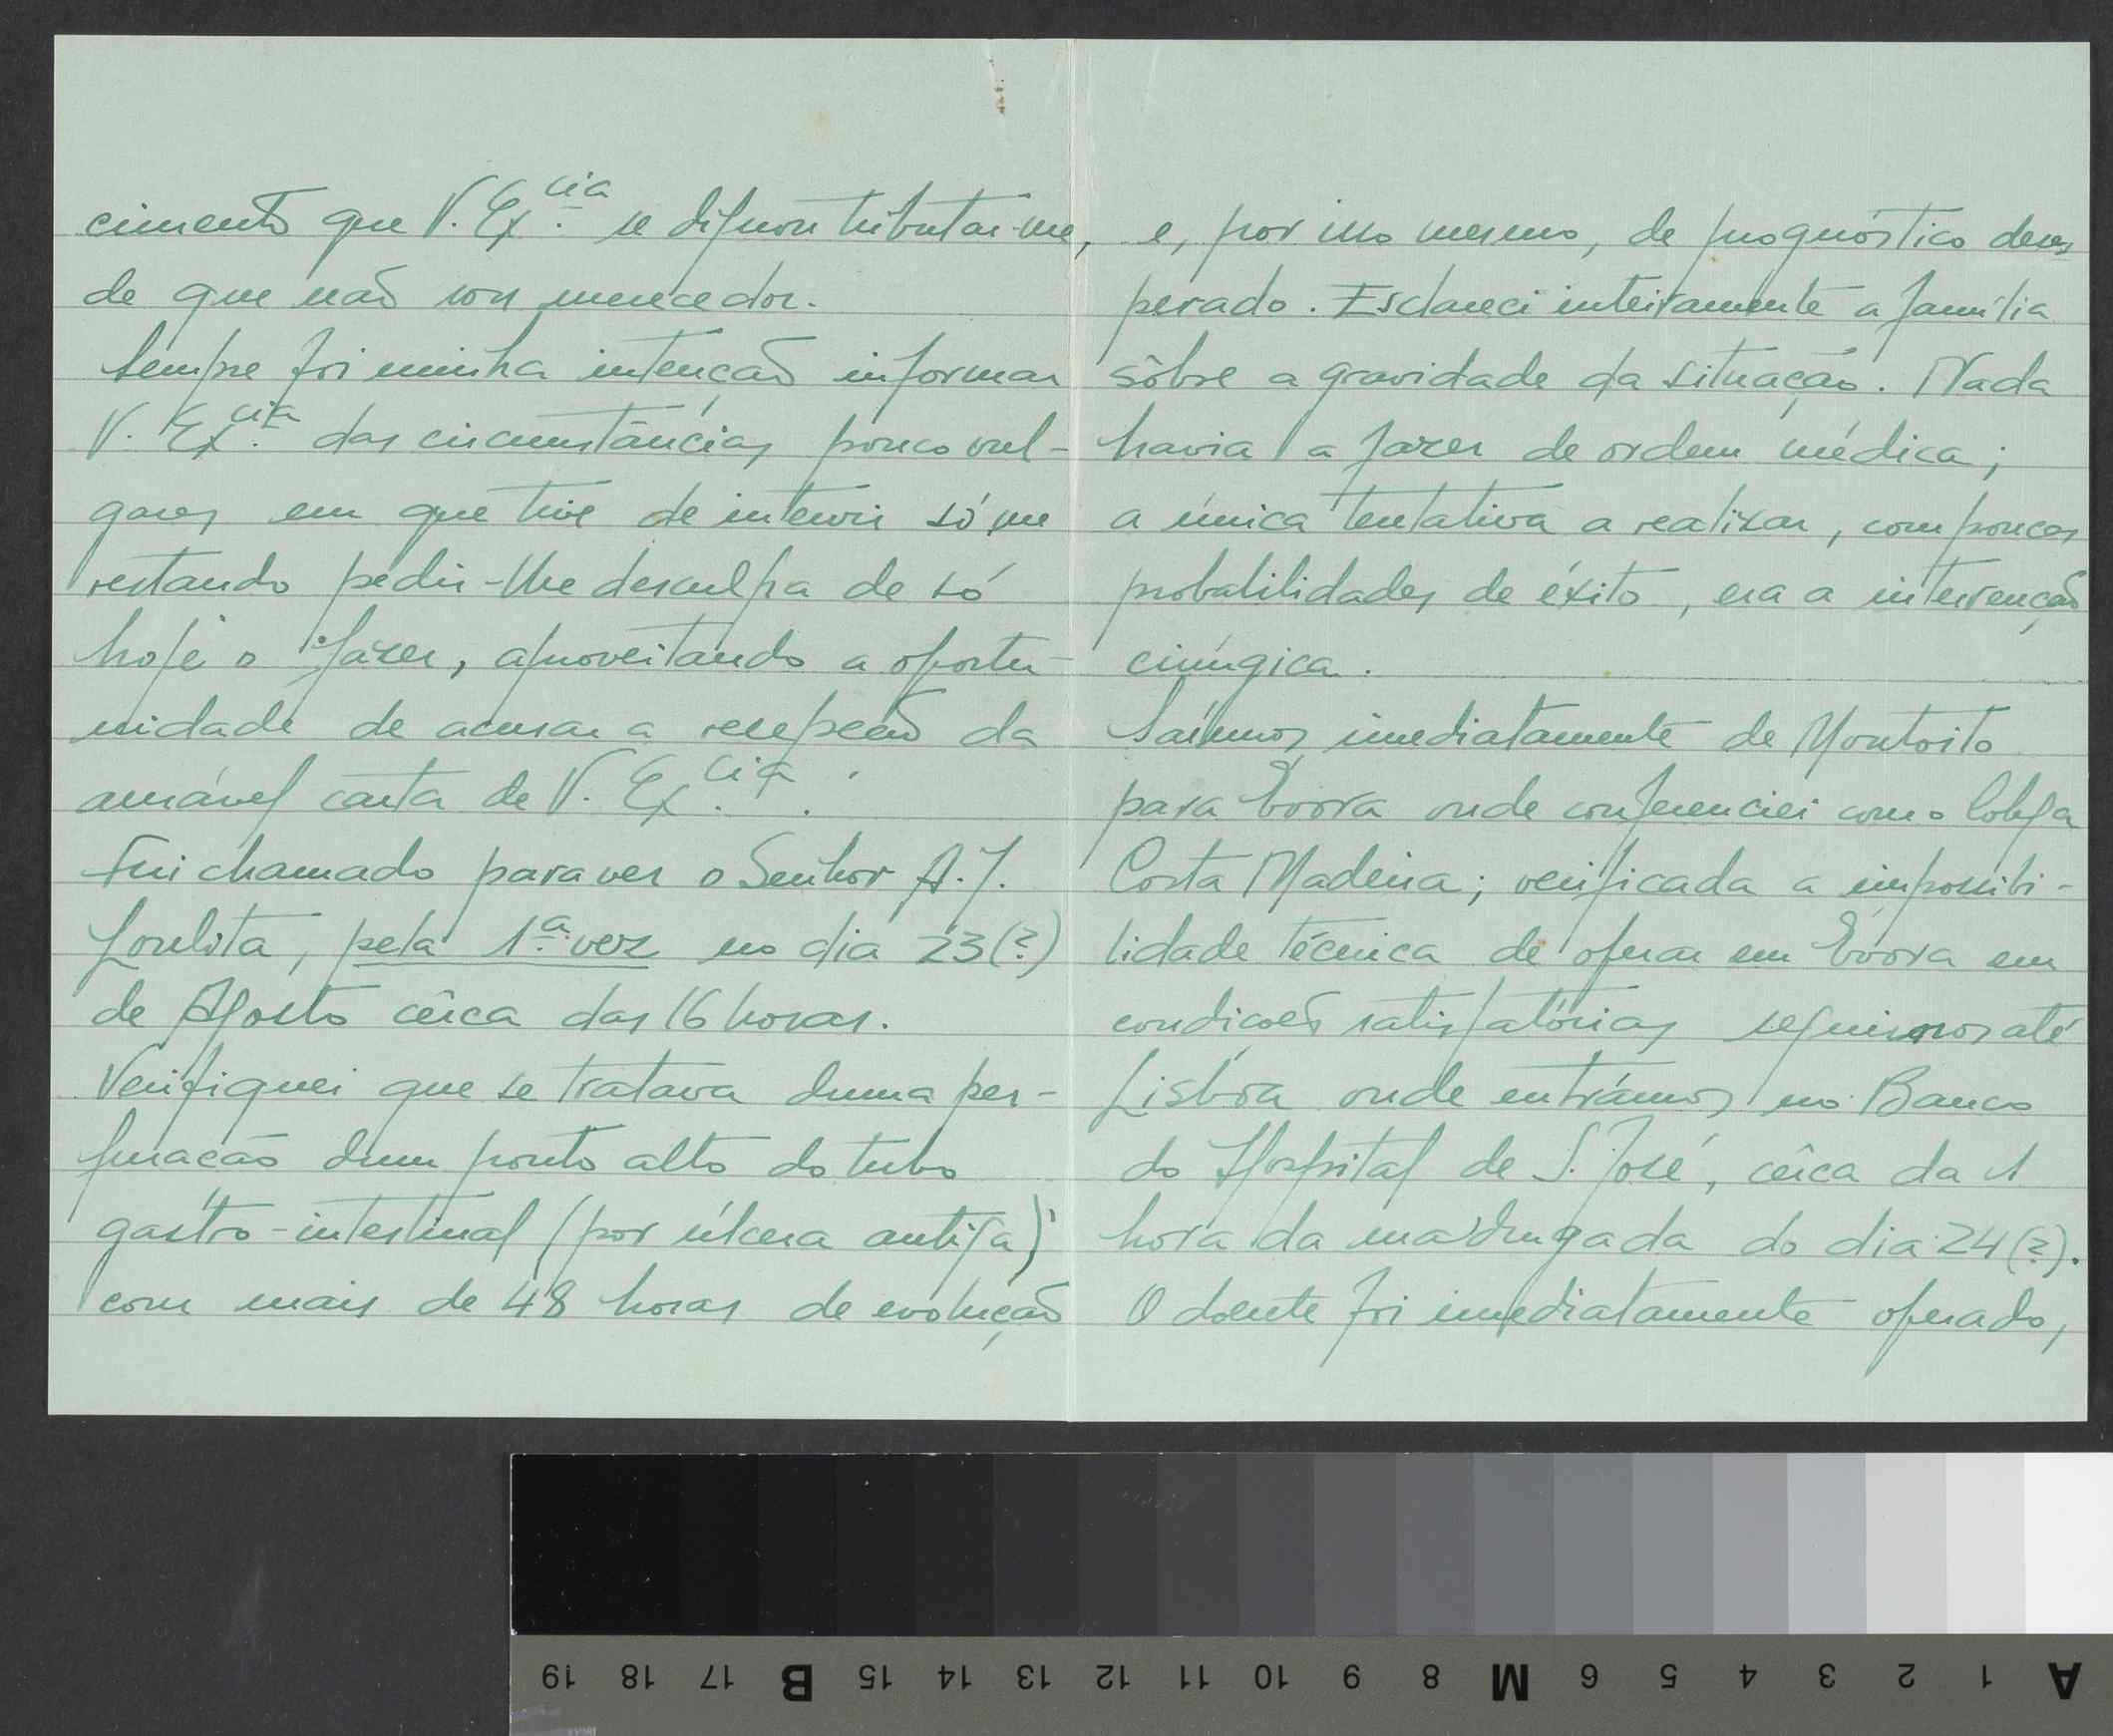 cimento que V. Ex.cia se dignou tributar-me,
de que não sou merecedor.
Sempre foi minha intenção informar
V. Ex.cia das circunstâncias pouco vul-
gares em que tive de intervir só me
restando pedir-lhe desculpa de só
hoje o fazer, aproveitando a oportu-
nidade de acusar a recepção da
amável carta de V. Ex.cia.
Fui chamado para ver o Senhor A. J.
pela 1.a vez no dia 23(?)
de Agosto cêrca das 16 horas.
Verifiquei que se tratava duma per-
furação dum ponto alto do tubo
gastro-intestinal (por úlcera antiga)
com mais de 48 horas de evolução
e, por isso mesmo, de prognóstico deses
perado. Esclareci inteiramente a família
sôbre a gravidade da situação. Nada
havia a fazer de ordem médica;
a única tentativa a realizar, com poucas
probabilidades de éxito, era a intervenção
cirúrgica.
Saímos imediatamente de Montoito
para Évora onde conferenciei com o Colega
Costa Madeira; verificada a impossibi-
lidade técnica de operar em Évora em
condições satisfatórias seguimos até
Lisbôa onde entrámos no Banco
do Hospital de S. José, cêrca da 1
hora da madrugada do dia 24(?).
O doente foi imediatamente operado,
A 1 2 3 4 5 6 M 8 9 10 11 12 13 14 15 B 17 18 19